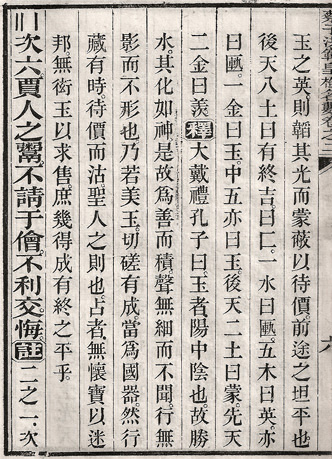 玉之英則韜其光而蒙蔽以待價前途之坦平也
後天八土曰有終吉曰匸一水曰匭五木曰英亦
曰匭一金曰玉中五亦曰玉後天二土曰蒙先天
二金曰羨釋大戴禮孔子曰玉者陽中陰也故勝
水其化如神是故爲善而積聲無細而不聞行無
影而不形也乃若美玉切磋有成當爲國器然行
藏有時待價而沽聖人之則也占者無懷寶以迷
邦無衒玉以求售庶幾得成有終之平乎
次六賈人之鬻不請于儈不利交悔註二之一次